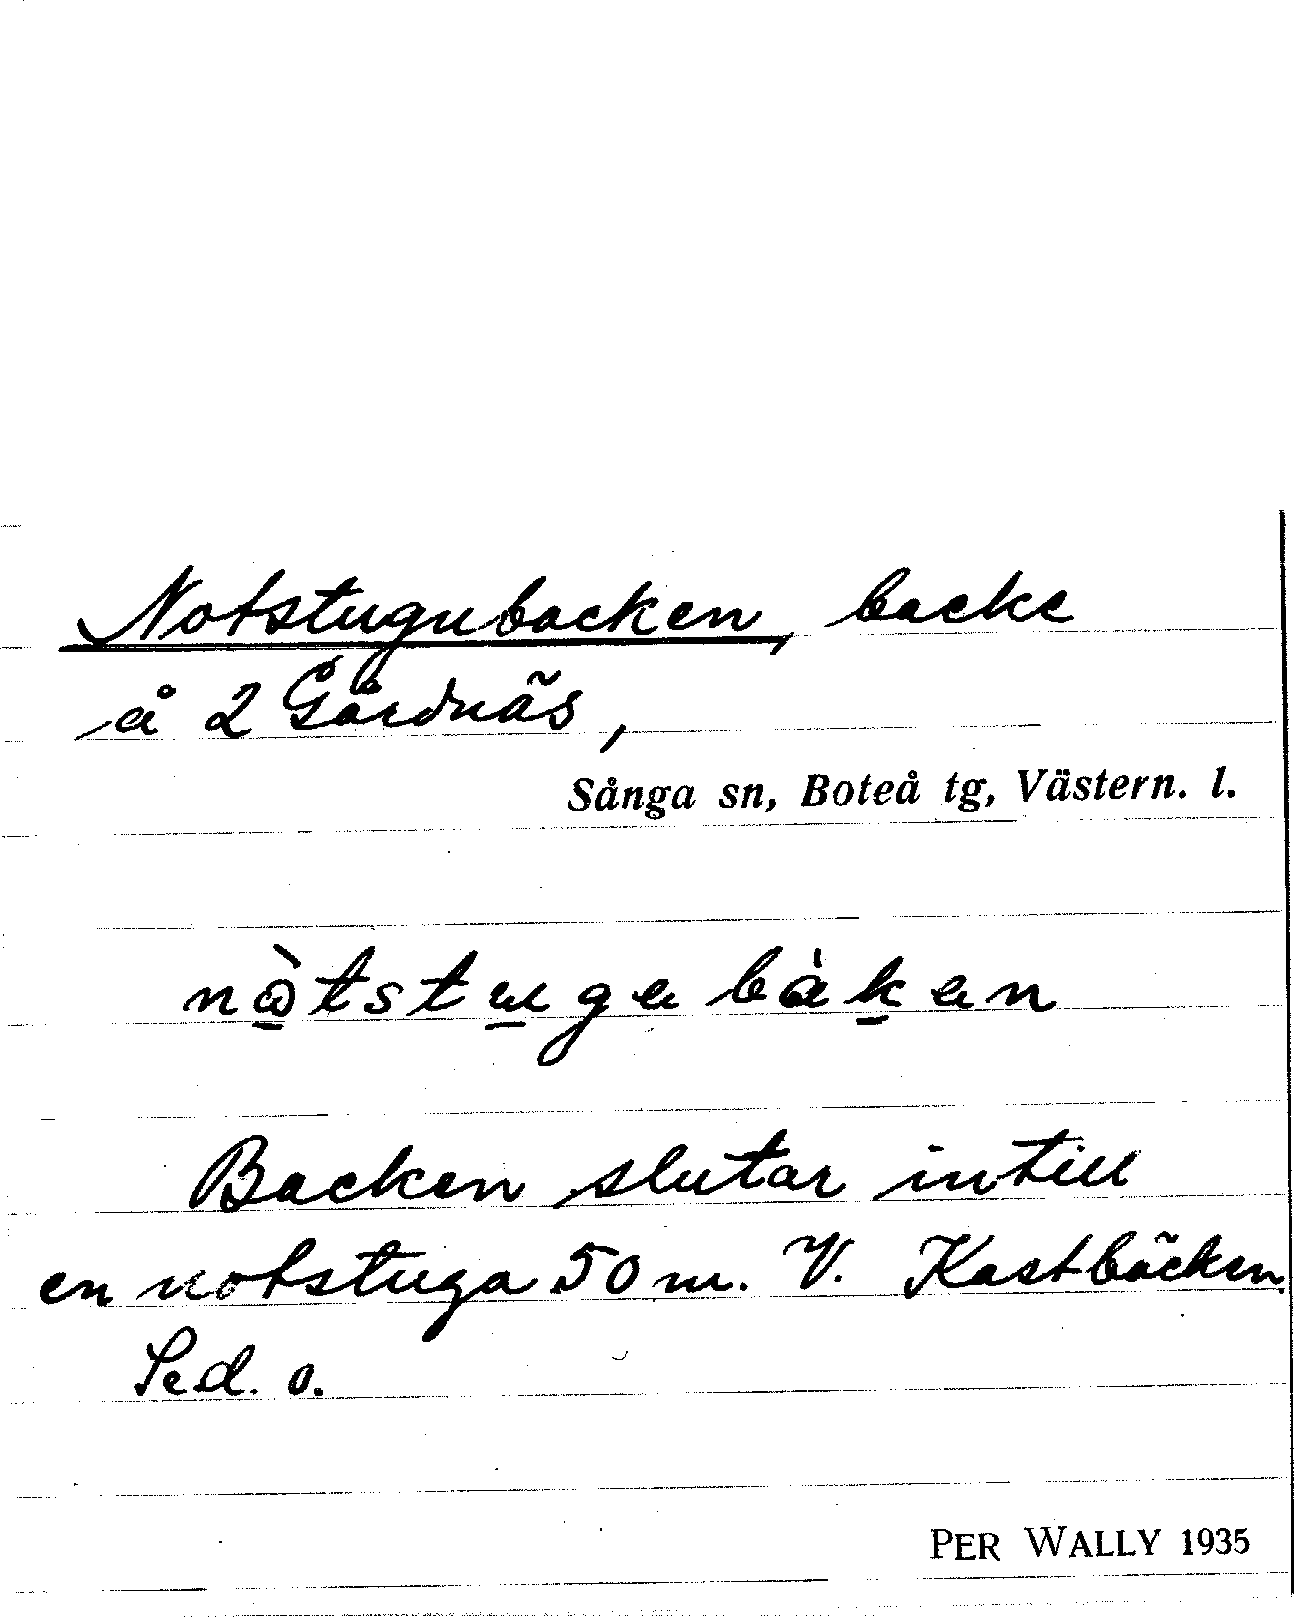 Notstugubacken, backe
å 2 Gårdnäs,
Sånga sn, Boteå tg, Västern. l.
nὼtstugebàken
Backen slutar intill
en notstuga 50 m. V. Kastbäcken.
Led. o.
PER WALLY 1935